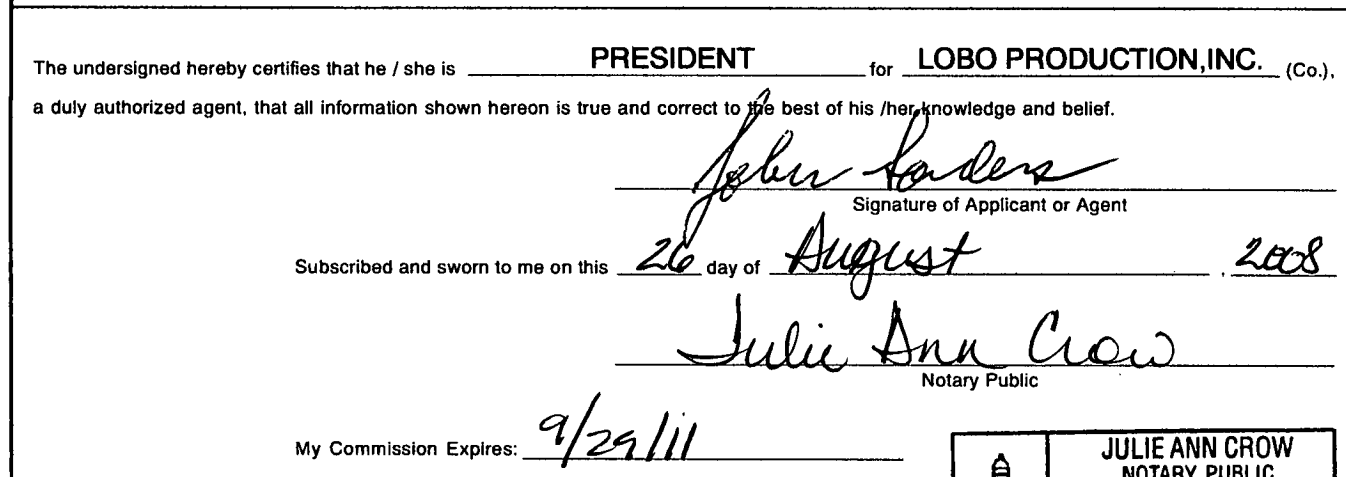 The undersigned hereby certifies that he / she is PRESIDENT for LOBO PRODUCTION,INC. (Co.),
a duly authorized agent, that all information shown hereon is true and correct to the best of his /her knowledge and belief.
John Sanders
Signature of Applicant or Agent
Subscribed and sworn to me on this 26 day of August , 2008
Julie Ann Crow
Notary Public
My Commission Expires: 9/29/11
JULIE ANN CROW
NOTARY PUBLIC